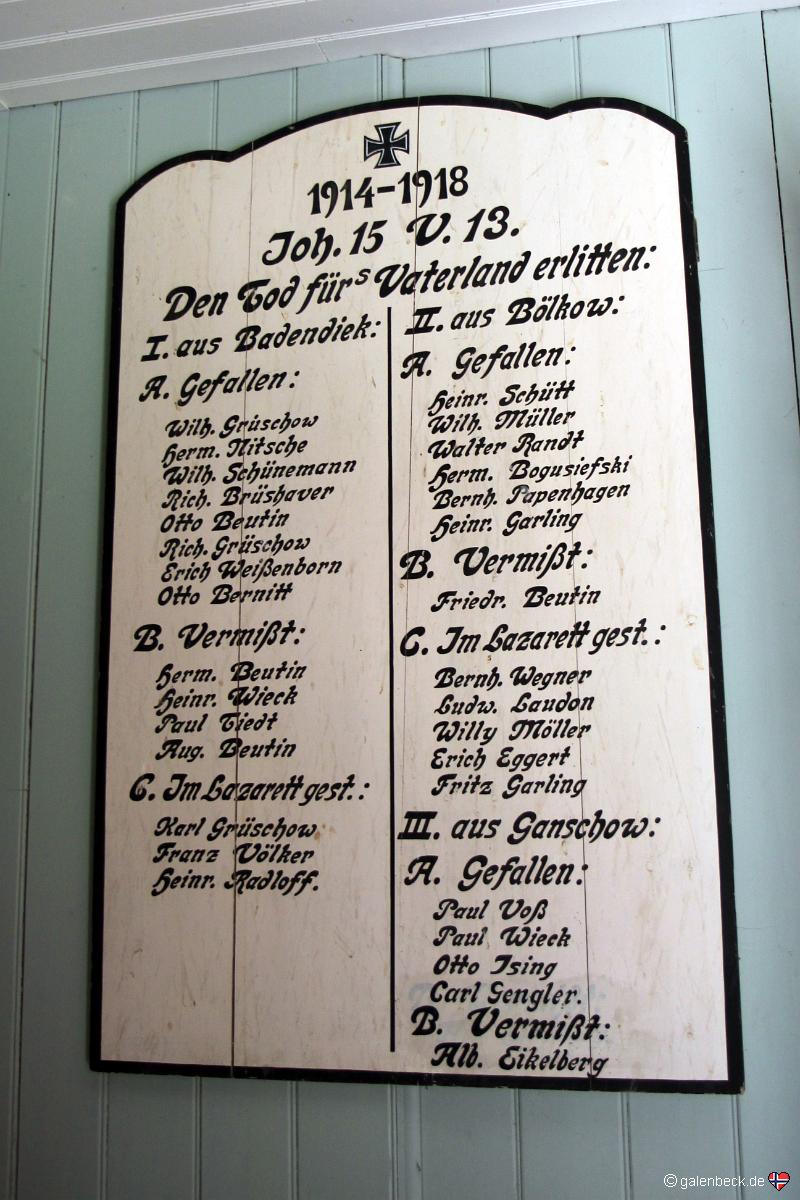 1914-1918
Joh. 15 V. 13.
Den Tod fürs Vaterland erlitten:
I. aus Badendiek:
A. Gefallen:
Wilh. Grüschow
Herm. Nitsche
Wilh. Schünemann
Rich. Brüshaver
Otto Beutin
Rich. Grüschow
Erich Weißenborn
Otto Bernitt
B. Vermißt:
Herm. Beutin
Heinr. Wieck
Paul Tiedt
Aug. Beutin
C. Im Lazarett gest.:
Karl Grüschow
Franz Völker
Heinr. Radloff.
II. aus Bölkow:
A. Gefallen:
Heinr. Schütt
Wilh. Müller
Walter Randt
Herm. Bogusiefski
Bernh. Papenhagen
Heinr. Garling
B. Vermißt:
Friedr. Beutin
C. Im Lazarett gest.:
Bernh. Wegner
Ludw. Laudon
Willy Möller
Erich Eggert
Fritz Garling
III. aus Ganschow:
A. Gefallen:
Paul Voß
Paul Wieck
Otto Ising
Carl Gengler.
B. Vermißt:
Alb. Eikelberg
© galenbeck.de